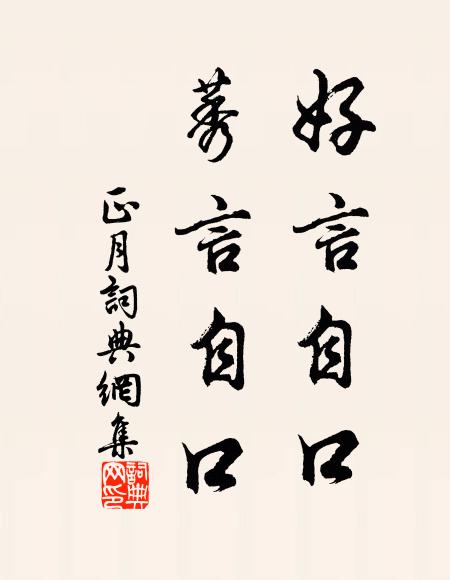 好言自口
莠言自口
正月詞典網集
詞典网印